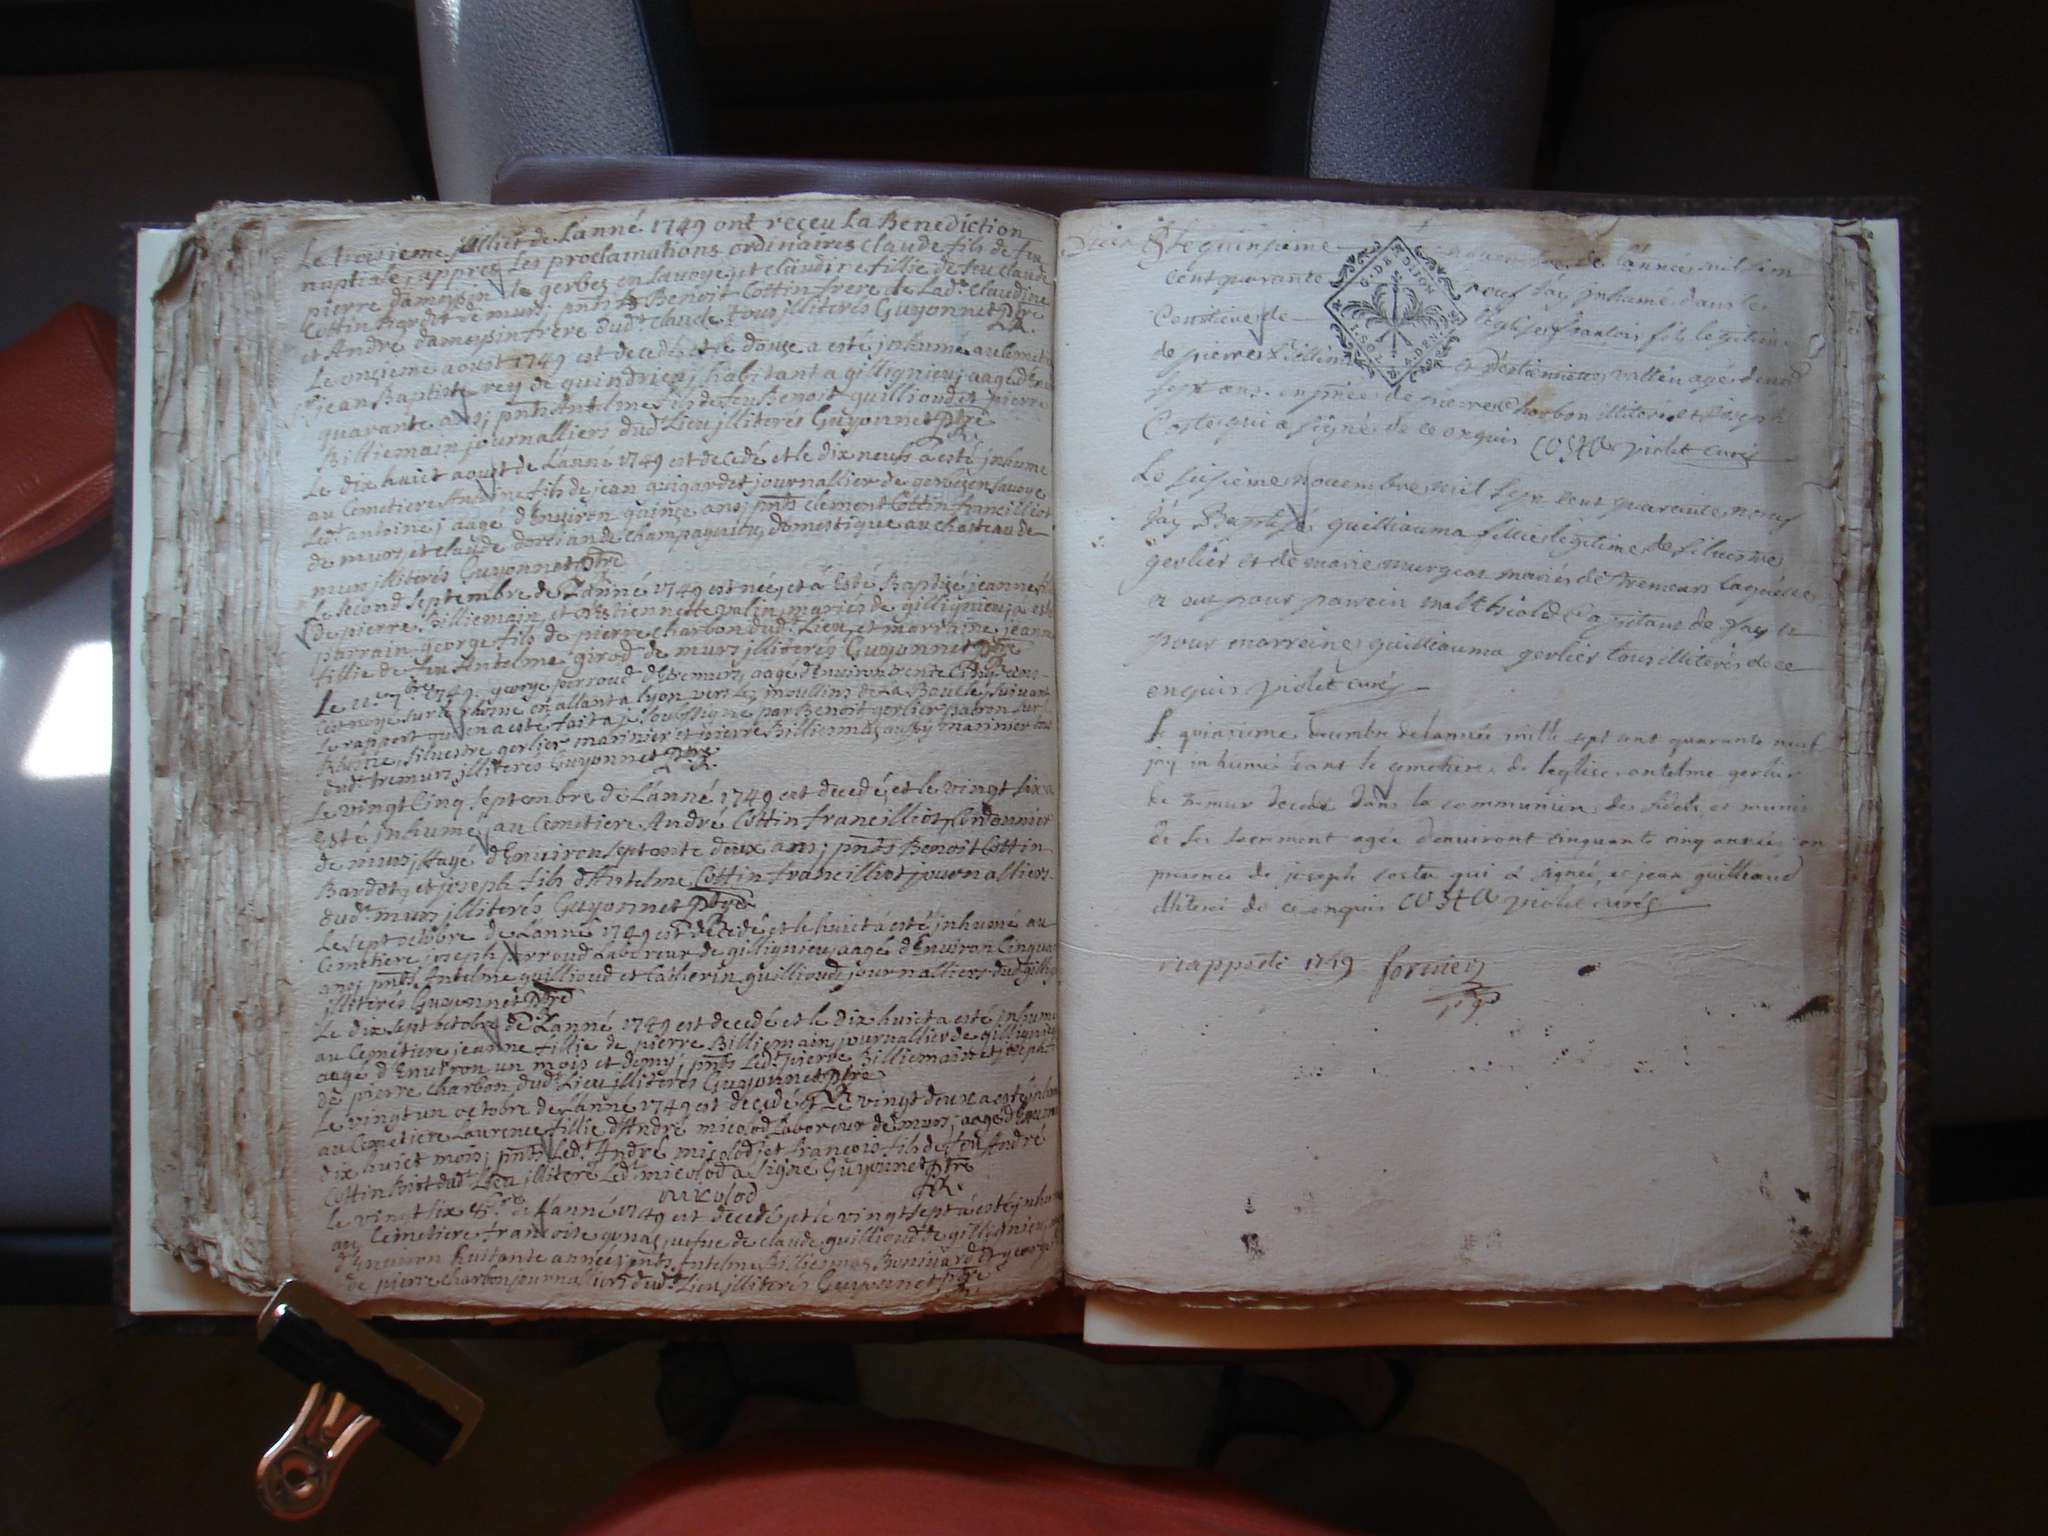 Le troisieme juilliet de L'anné 1749 ont reçeu La Benediction
nuptiale, appres Les proclamations ordinaires claude fils de feu
pierre dameysin de gerbez en Savoye, et claudine fillie de feu claude
Cottin Bardit de murs, pnts Benoit Cottin frere de Lade Claudine
et André dameysin frere dudt claude tous jlliterés Guyonnet ptre
Le onzieme aoust 1749 est decedé et le douze a esté jnhumé au Cemetiere
jean Baptiste rey de quindrieu, habitant a gillignieu, aagé d'Environ
quarante ans, pnts Antelme fils de feu Benoit quillioud et pierre
Billiemain journalliers dudt Lieu jlliterés Guyonnet ptre
Le dix huict aoust de L'anné 1749 est decedé et le dix neufs a esté jnhume
au Cemetiere Antoine fils de jean guigardet journallier de gerbez en Savoye
Ledt antoine, aagé d'Environ quinze ans, pnts clement Cottin francilliot
de murs, et claude dorliande champagnieu, domestique au chasteau de
murs jlliterés Guyonnet ptre
Le second septembre de L'anné 1749 est née et a Esté Baptisé jeanne fillie
de pierre Billiemain, et d'Estiennette valin mariés de gillignieu, a esté
parrain george fils de pierre charbon dudt Lieu, et marraine jeanne
fillie de feu Antelme girod de murs jlliterés Guyonnet ptre
Le 11e 7bre 1749 george perroud d'Etremurs, aagé d'Environ trente Cinq ans
C'est noyé sur le rhosne en allant a lyon vers les moullins de La Boucle, suivant
Le rapport qu'en a esté fait a je soussigné par Benoit gerlier patron sur
Rhosne, Silvestre gerlier marinier et pierre Billiemas aussy marinier tous
dudt tremurs jlliterés Guyonnet ptre
Le vingt Cinq septembre de L'anné 1749 est decedé, et le vingt six a
Esté jnhumé au Cemetiere André Cottin francilliot, Cordonnier
de murs, aagé d'Environ septante deux ans, pnts Benoit Cottin
Bardet, et joseph fils d'Antelme Cottin francilliot journalliers
dudt murs jlliterés Guyonnet ptre
Le sept octobre de L'anné 1749 est decedé et le huict a esté jnhumé au
Cemetiere joseph perroud Laboreur de gillignieu, aagé d'Environ Cinquante
ans, pnts Antelme quillioud et Catherin quillioud journalliers dudt gillignieu
jlliterés Guyonnet ptre
Le dix sept octobre de L'anné 1749 est decedé et le dix huict a esté jnhumé
au Cemétiere jeanne fillie de pierre Billiemain journallier de gillignieu
aagé d'Environ un mois et demy, pnts Ledt pierre Billiemain et joseph
de pierre charbon dudt Lieu jlliterés Guyonnet ptre
Le vingt un octobre de L'anné 1749 est decedé et Le vingt deux a esté jnhumé
au Cemetiere Laurence fillie d'André micolod Laboreur de murs, aagé d'Environ
dix huict mois, pnts Ledt André micolod, et françois fils de feu André
Cottin dudt Lieu jlliteré Ledt micolod a signé Guyonnet ptre
micolod
Le vingt six 8bre de L'anné 1749 est decedé, et le vingt sept a esté jnhumé
au Cemetiere françoise veufve de claude quillioud de gillignieu
d'Environ huitante années, pnts Antelme Billiemas Bonivard et george
de pierre charbon journalliers dudt Lieu jlliterés Guyonnet ptre
G. DE DIJON
Le quinsieme novembre de l'année mil sept
cent quarante neuf j'ay jnhumé dans le
Cemetiere de l'église francois fils legitime
de pierre et d'estiennette vallin agé d'environ
sept ans en pnce de pierre Charbon illiteré et joseph
Coste qui a signé de ce enquis COSTA violet curé
Le sisieme novembre mil sept cent quarante neuf
j'ay Baptisé guilliauma fillie legitime de siluestre
gerlier et de marie murgeat mariés de tremeurs laquelle
a eut pour parrein de jay et
pour marreine guilliauma gerlier tous illiterés de ce
enquis violet curé
Le quinsieme decembre de lannée mille sept cent quarante neuf
jay in humé dans le cemetiere de leglise antelme gerlier
de tremur decedé dans la communion des fidels et munis
de ses sacrement agée denuiront cinquante cinq années en
presence de joseph costa qui a signée et jean guilleaud
illiteré de ce enquis COSTA violet curé
rapporté 1749 fornier